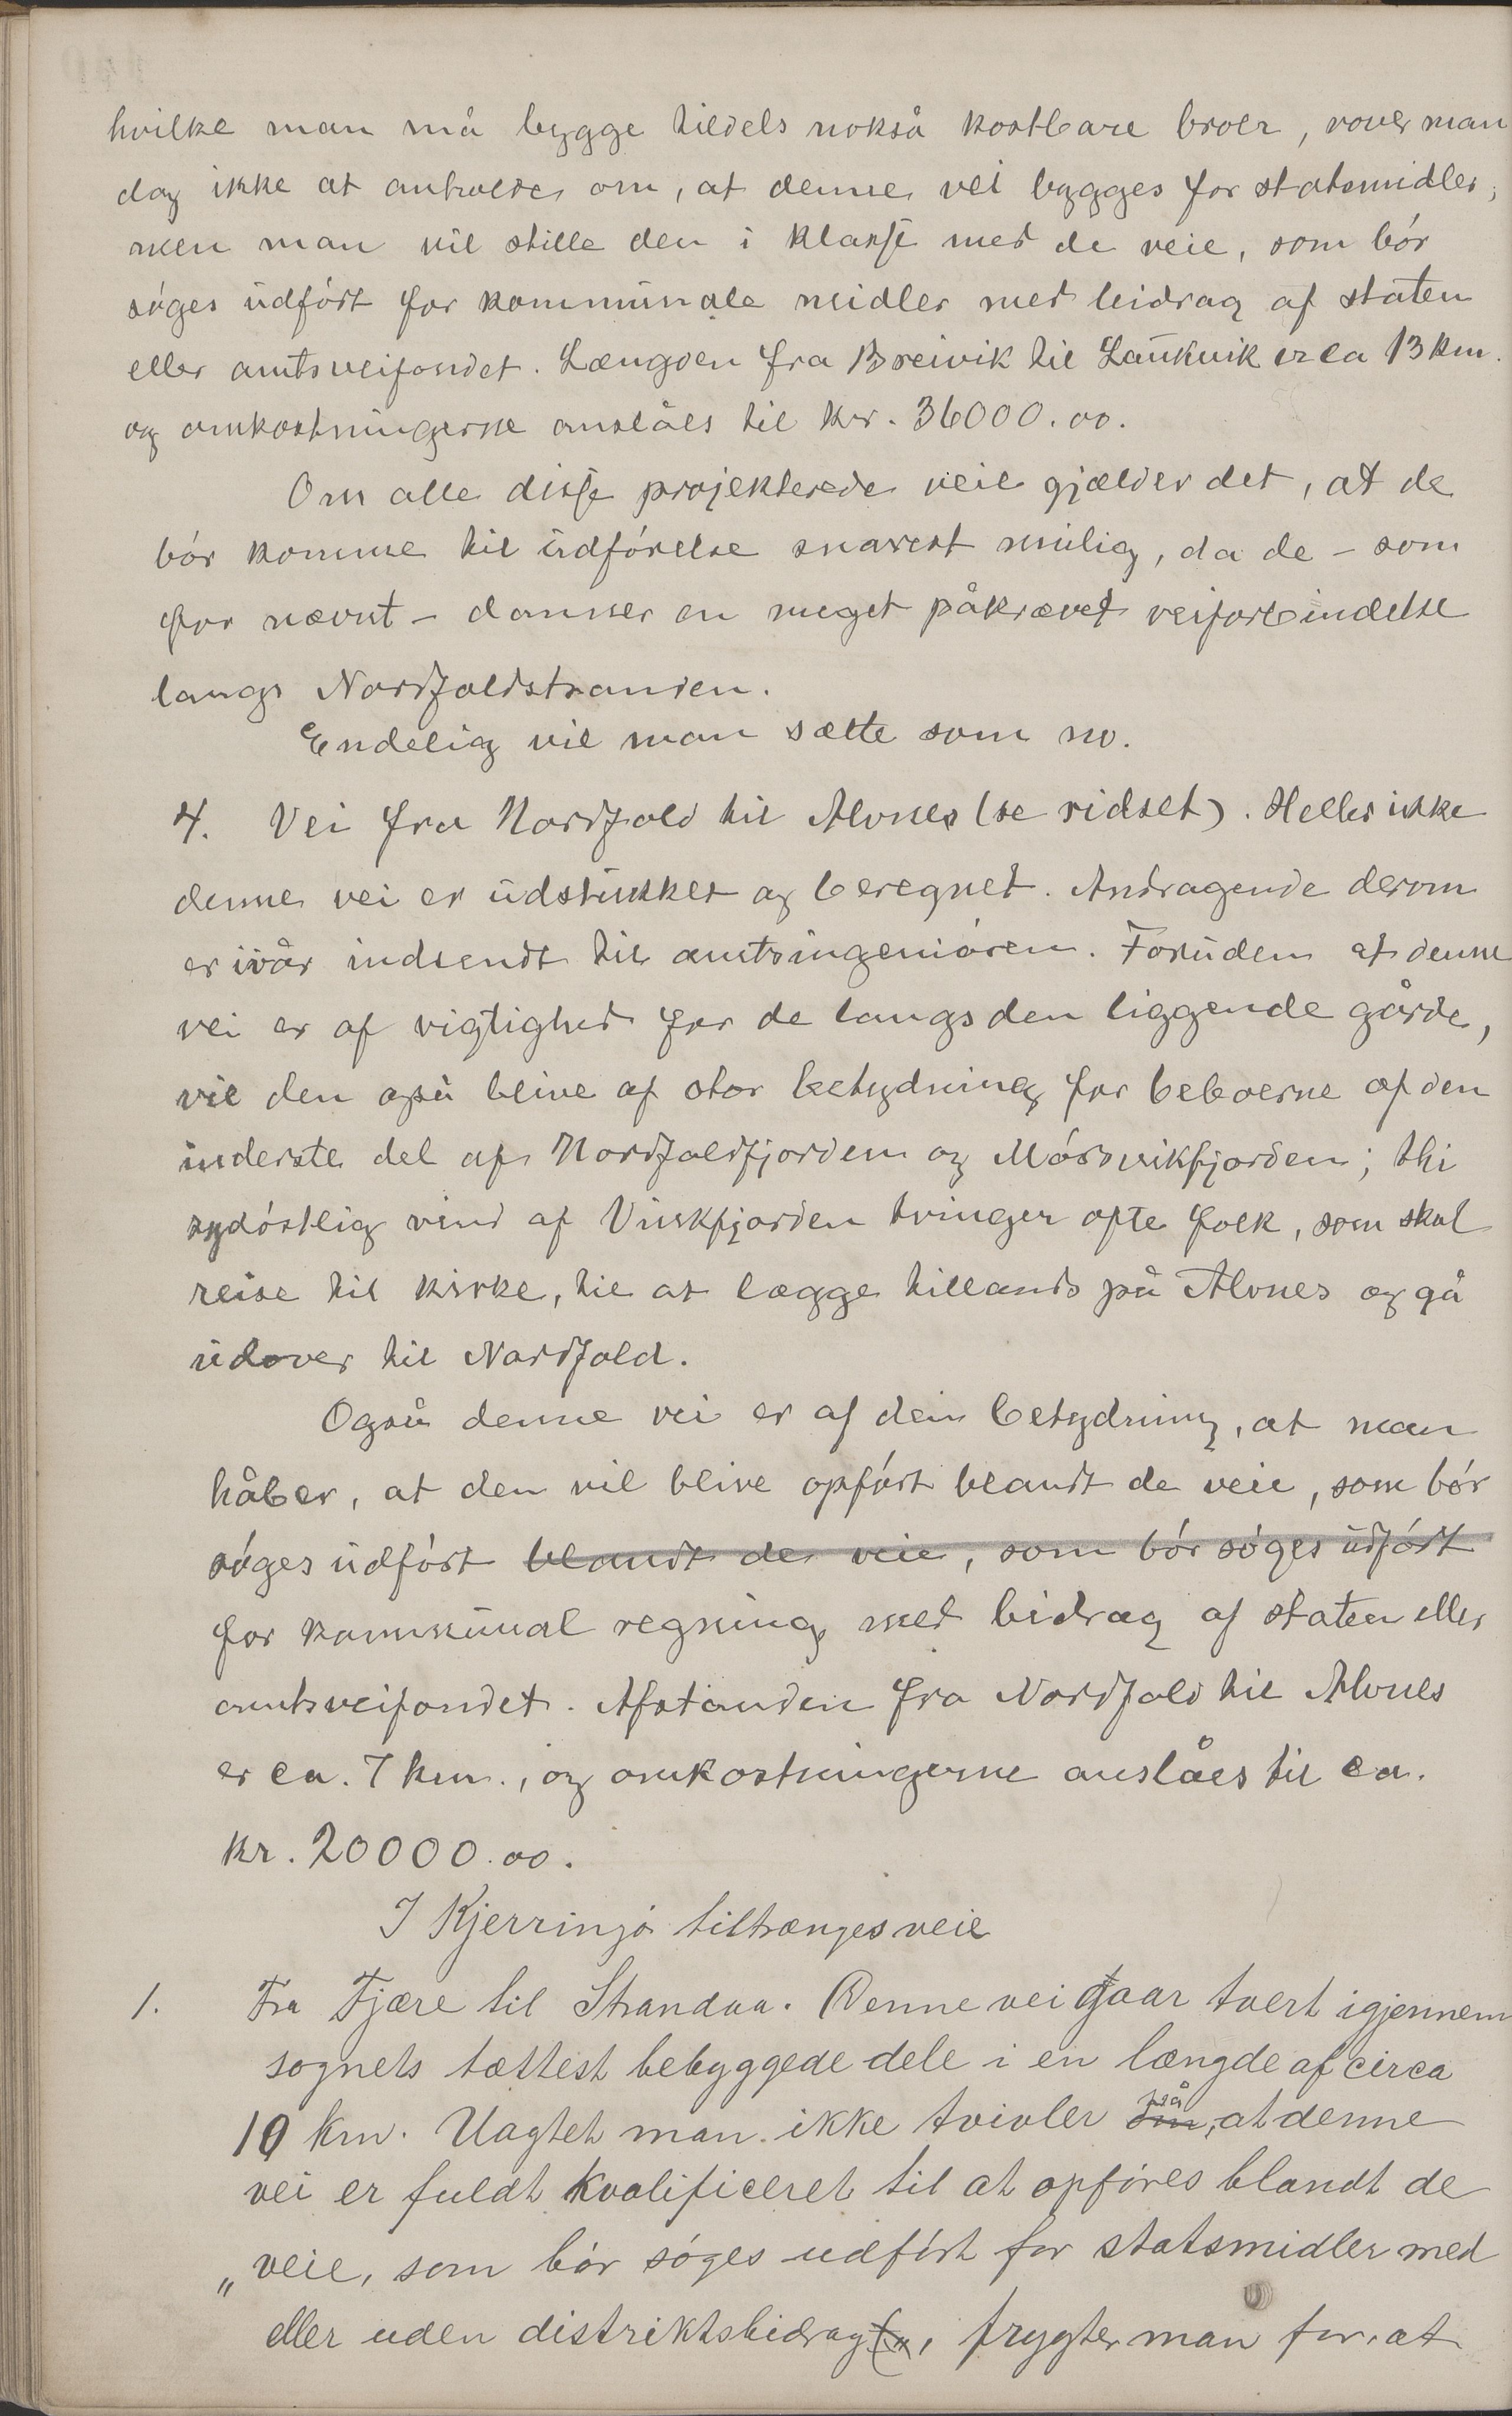 hvilke man må bygge tildels nokså kostbare broer, vover man
dog ikke at anholde om, at denne vei bygges for statsmidler,
men man vil stille den i klasse med de veie, som bór
sóges udfórt for kommunale midler med bidrag af staten
eller amtsveifondet. Længden fra Breivik til Laukvik er ca 13 km.
og omkostningerne anslåes til kr. 36000.00.
Om alle disse projekterede veie gjælder det, at de
bór komme til udfórelse snarest mulig, da de - som
fór nævnt - danner en meget påkrævet veiforbindelse
langs Nordfoldstranden.
Endelig vil man sætte som no.
4. Vei fra Nordfold til Alvnes (se ridset). Heller ikke
denne vei er udstukket og beregnet. Andragende derom
er iår indsendt til amtsingenióren. Foruden at denne
vei er af vigtighed for de langs den liggende gårde,
vil den også blive af stor betydning for beboerne af den
inderste del af Nordfoldfjorden og Mórsvikfjorden; thi
sydóstlig vind af Vinkfjorden tvinger ofte folk, som skal
reise til kirke, til at lægge tillands på Alvnes og gå
udover til Nordfold.
Også denne vei er af den betydning, at man
håber, at den vil blive opfórt blandt de veie, som bór
sóges udfórt blandt de veie, som bór sóges udfórt
for kommunal regning med bidrag af staten eller
amtsveifondet. Afstanden fra Nordfold til Alvnes
er ca. 7 km., og omkostningerne anslåes til ca.
kr. 20000.00.
I Kjerringó tiltrænges veie
1. Fra Fjære til Strandaa. Denne vei gaar tvert igjennem
sognets tættest bebyggede dele i en længde af circa
10 km. Uagtet man ikke tvivler om på, at denne
vei er fuldt kvalificeret til at opfóres blandt de
„veie, som bór sóges udfórt for statsmidler med
eller uden distriktsbidrag", frygter man for, at